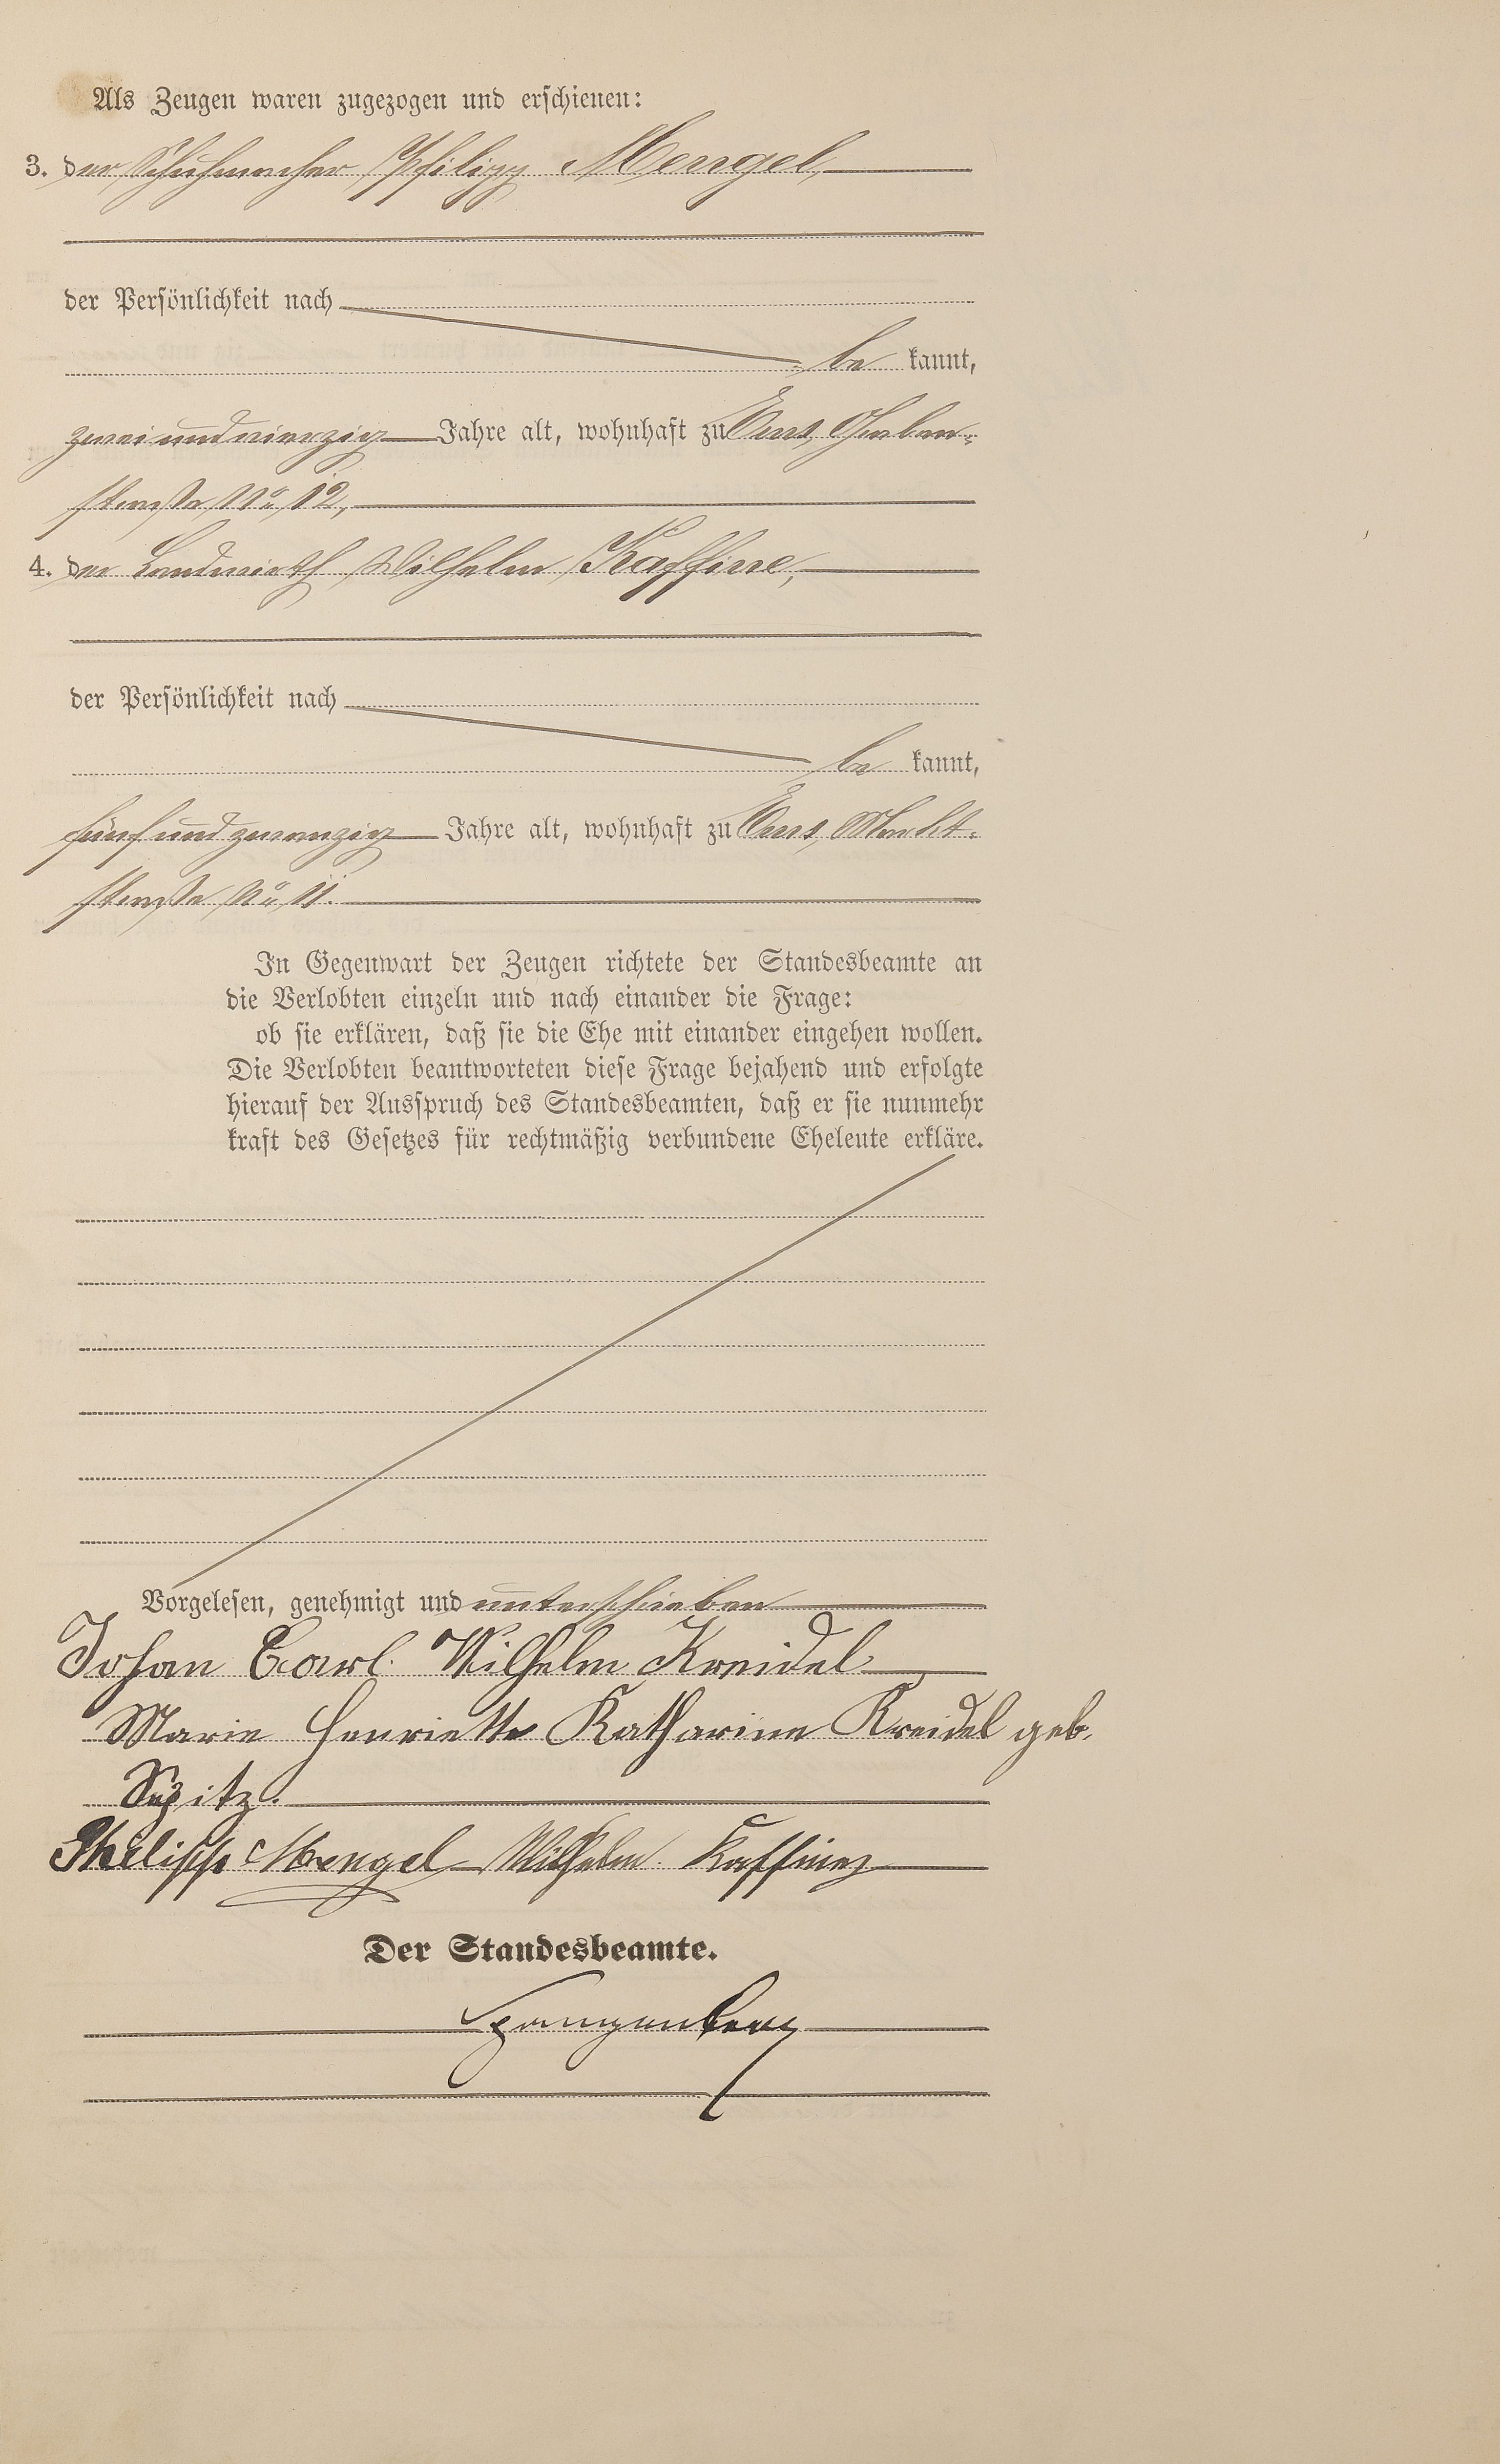 Als Zeugen waren zugezogen und erschienen:
3. der Schuhmacher Philipp Mengel,
der Persönlichkeit nach
be kannt,
zweiundvierzig Jahre alt, wohnhaft zu Ems, Graben-
straße No. 12,
4. der Landwirth Wilhelm Kaffine,
der Persönlichkeit nach
be kannt,
fünfundzwanzig Jahre alt, wohnhaft zu Ems, Markt-
straße No. 11.
In Gegenwart der Zeugen richtete der Standesbeamte an
die Verlobten einzeln und nach einander die Frage:
ob sie erklären, daß sie die Ehe mit einander eingehen wollen.
Die Verlobten beantworteten diese Frage bejahend und erfolgte
hierauf der Ausspruch des Standesbeamten, daß er sie nunmehr
kraft des Gesetzes für rechtmäßig verbundene Eheleute erkläre.
Vorgelesen, genehmigt und unterschrieben
Johan Carl. Wilhelm Kreidel
Marie Henriette Katharine Kreidel geb.
Spitz.
Philipp Mengel Wilhelm Kaffiney
Der Standesbeamte.
Spangenberg